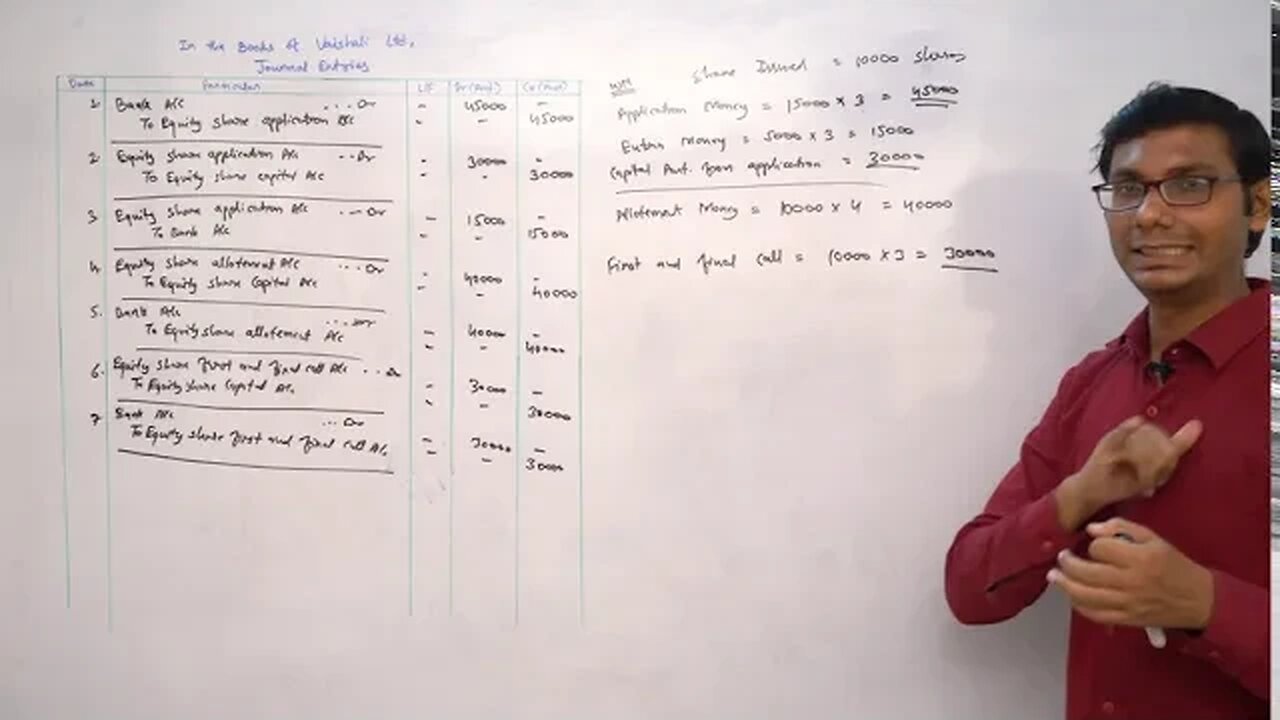 In the Books of Vaishali Ltd,
Journal Entries
Date Particular L/F Dr(Amt) Cr(Amt)
1. Bank A/c ...Dr - 45000 -
To Equity share application A/c - - 45000
2. Equity share application A/c ...Dr - 30000 -
To Equity share capital A/c - - 30000
3 Equity share application A/c ...Dr - 15000 -
To Bank A/c - - 15000
4. Equity share allotement A/c ...Dr - 40000 -
To Equity share Capital A/c - - 40000
5. Bank A/c ...Dr - 40000 -
To Equity share allotement A/c - - 40000
6. Equity share first and final call A/c ..Dr - 30000 -
To Equity share Capital A/c - - 30000
7 Bank A/c ...Dr - 30000 -
To Equity share first and final call A/c - - 30000
W/N Share Issued = 10000 shares
Application Money = 15000 x 3 = 45000
Extra Money = 5000 x 3 = 15000
Capital Amt. from application = 30000
Allotement Money = 10000 x 4 = 40000
First and final call = 10000 x 3 = 30000